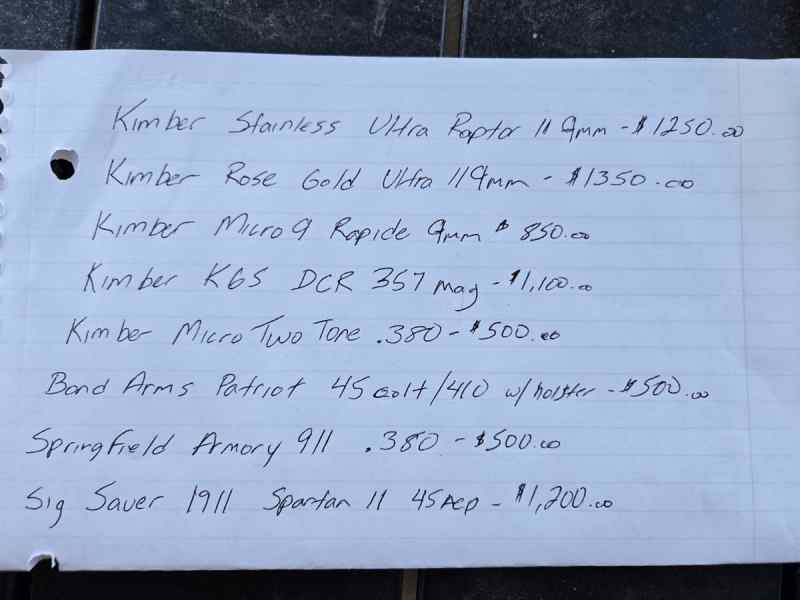 Kimber Stainless Ultra Raptor II 9mm - $1250.00
Kimber Rose Gold Ultra II 9mm - $1350.00
Kimber Micro 9 Rapide 9mm $ 850.00
Kimber K6S DCR 357 mag - $1,100.00
Kimber Micro Two Tone .380 - $500.00
Bond Arms Patriot 45 colt/410 w/holster - $500.00
Springfield Armory 911 .380 - $500.00
Sig Sauer 1911 Spartan II 45 Acp - $1,200.00